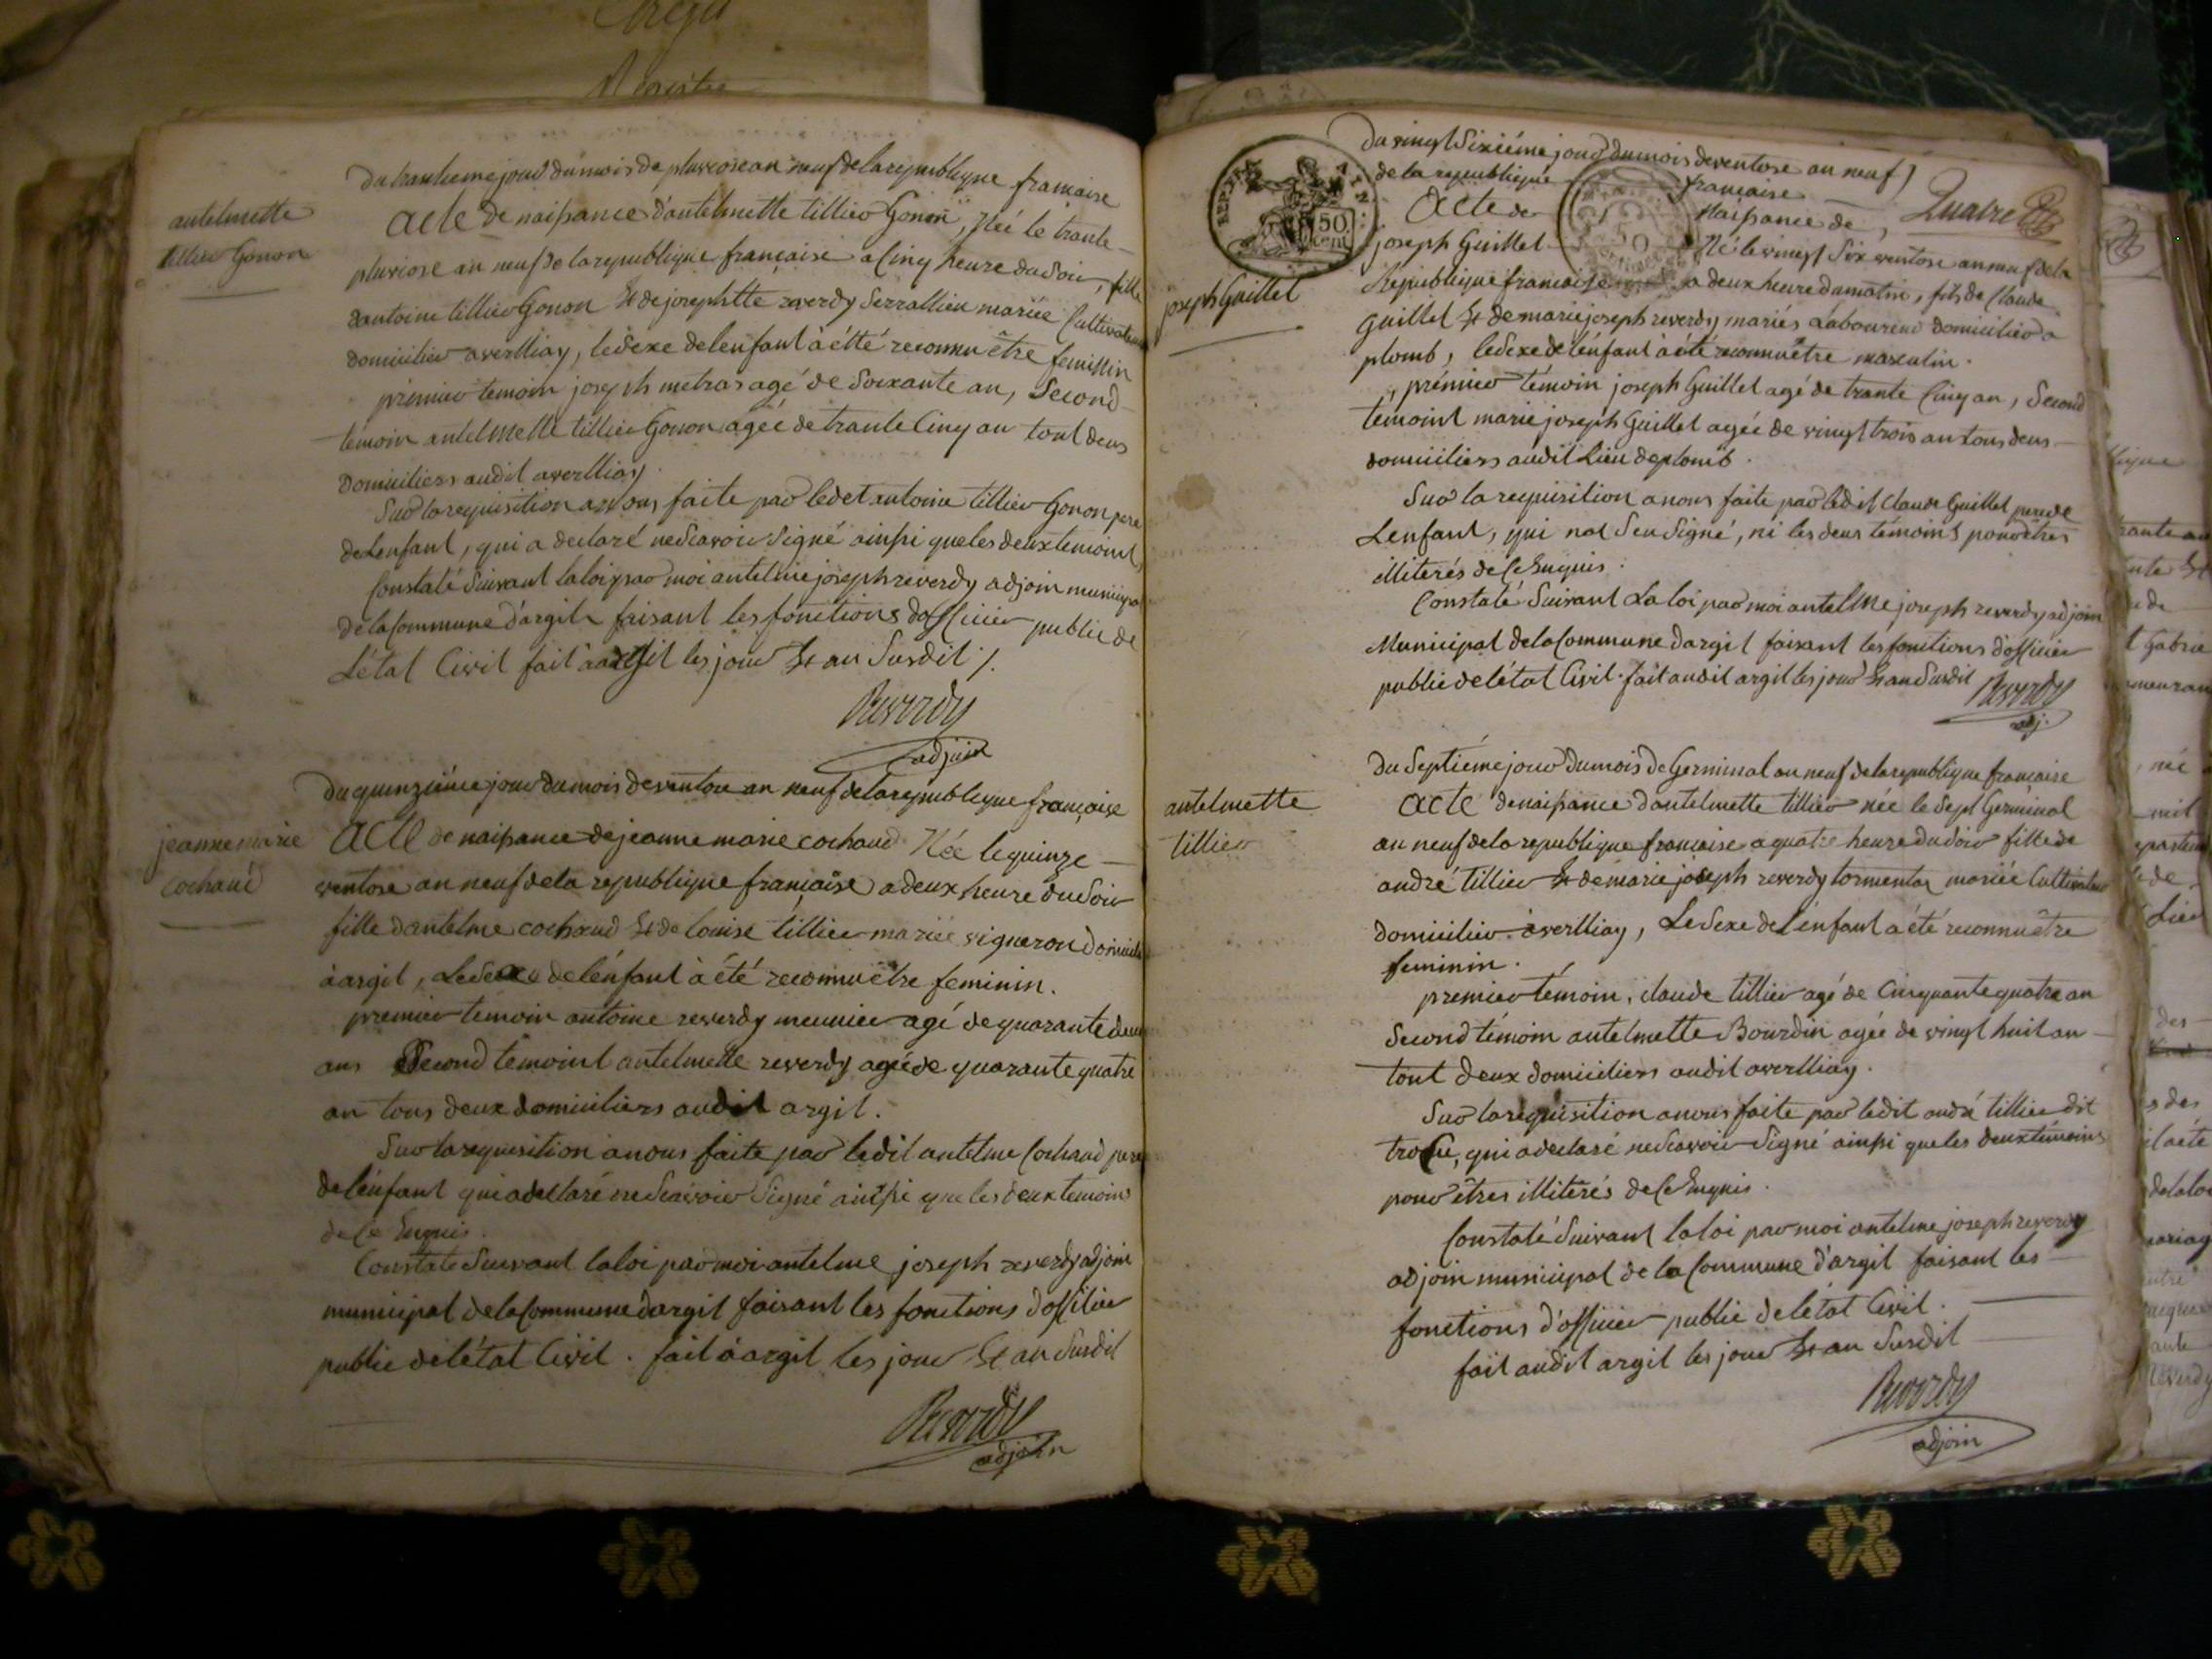 Argil
Registre
du trantieme jour du mois de pluviose an neuf de la republique francaise
antelmette
tillier Gonon
Acte de naissance d'antelmette tillier Gonon, Née le trante
pluviose an neuf de la republique francaise a Cinq heure du Soir, fille
dantoine tillier Gonon Et de josephtte reverdy Serrallieu mariée Cultivateur
domicilier averlliay, le Sexe de lenfant à étté reconnu être feminin
prémier temoin joseph metras agé de Soixante an, Second
témoin antelmette tillier Gonon agée de trante Cinq an tout deus
Domiciliers audit averlliay.
Sur la requisition a nous faite par ledet antoine tillier Gonon pere
de Lenfant, qui a declaré ne Scavoir Signé ainssi que les deux temoint,
Constaté Suivant la loi par moi antelme joseph reverdy adjoin municipal
de la Commune d'argil faisant les fonctions d'officier public de
L'état Civil fait à argil les jour Et an Susdit ./.
Reverdy
adjoin
du quinziéme jour du mois de ventose an neuf de la republique française
jeanne marie
cochaud
Acte de naissance de jeanne marie cochaud Née le quinze
ventose an neuf de la republique française a deux heure du Soir
fille d'antelme cochaud Et de louise tillier mariée vigneron domicilie
à argil, Le Sexe de lénfant à été reconnu être feminin.
premier temoin antoine reverdy meunier agé de quarante deux
ans Second témoint antelmette reverdy agée de quarante quatre
an tous deux domiciliers audit argil.
Sur la requisition a nous faite par ledit antelme Cochaud pere
de lénfant qui a declaré ne Scavoir Signé ainssi que les deux temoins
de Ce Enquis.
Constaté Suivant la loi par moi antelme joseph reverdy adjoin
municipal de la Commune dargil faisant les fonctions d'officier
public de létat Civil. fait à argil les jour Et an Susdit
Reverdy
adjoin
du vingt Sixiéme jour du mois de ventose an neuf
de la republique francaise
REP.FRA.
50
cent
50
Quatre
Acte de Naissance de
joseph Guillet Né le vingt Six ventose an neuf de la
joseph Guillet
Republique francaise a deux heure du matin, fils de Claude
Guillet Et de marie joseph reverdy mariés Laboureur domicilier a
plomb, le Sexe de lénfant à été reconnu être masculin.
prémier témoin joseph Guillet agé de trante Cinq an, Second
témoint marie joseph Guillet agée de vingt trois an tous deus
domiciliers audit Lieu de plomb.
Sur la requisition a nous faite par ledit Claude Guillet pere de
Lenfant, qui nat Seu Signé, ni les deus témoins pour êtres
illiterés de Ce Enquis.
Constaté Suivant La loi par moi antelme joseph reverdy adjoin
Municipal de la Commune dargil faisant les fonctions d'officier
public de létat Civil. fait audit argil les jour Et an Susdit
Reverdy
adj.
du Septiéme jour du mois de Germinal an neuf de la republique francaise
antelmette
tillier
Acte de naissance d'antelmette tillier née le Sept Germinal
au neuf de la republique francaise a quatre heure du soir fille de
andré tillier Et de marie joseph reverdy tormentaz mariée Cultivateur
domicilier averlliay, Le Sexe de Lénfant a été reconnu être
feminin.
premier témoin, claude tillier agé de Cinquante quatre an
Second témoin antelmette Bourdin agée de vingt huit an
tout deux domiciliers audit averlliay.
Sur la requisition a nous faite par ledit andré tillier dit
qui a declaré ne Scavoir Signé ainssi que les deux témoins
pour êtres illiterés de Ce Enquis.
Constaté Suivant la loi par moi antelme joseph reverdy
adjoin municipal de la Commune d'argil faisant les
fonctions d'officier public de létat Civil.
fait audit argil les jour Et an Susdit
Reverdy
adjoin